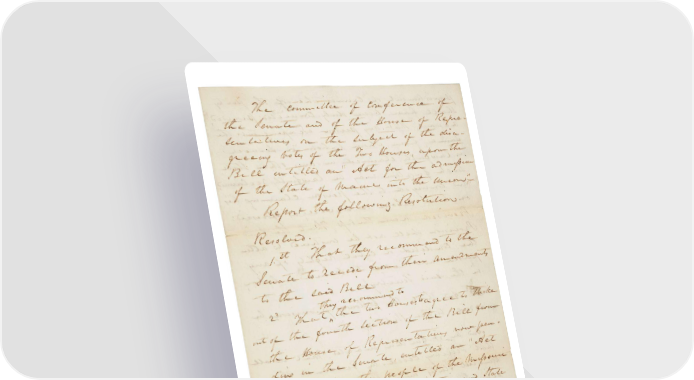 The committee of conference of
the Senate and of the House of Repre-
sentatives on the subject of the disa-
greeing votes of the Two Houses, upon the
Bill entitled an "Act for the admission
of the State of Maine into the Union",
Report the following Resolution.
Resolved.
1st That they recommend to the
Senate to recede from their amendments
to the said Bill
they recommend to
2 That the two Houses to strike
out of the fourth section of the Bill from
the House of Representatives now pen-
ding in the Senate, entitled an "Act
people of the Missouri
State